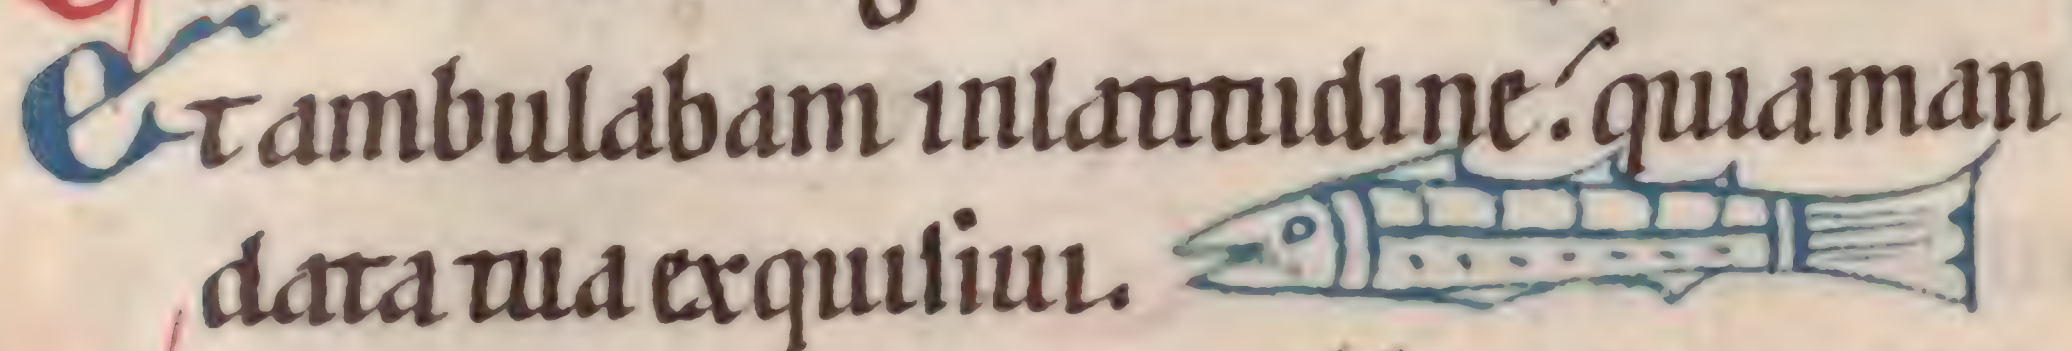 Et ambulabam in latitudine: quia man
data tua exquisiui.